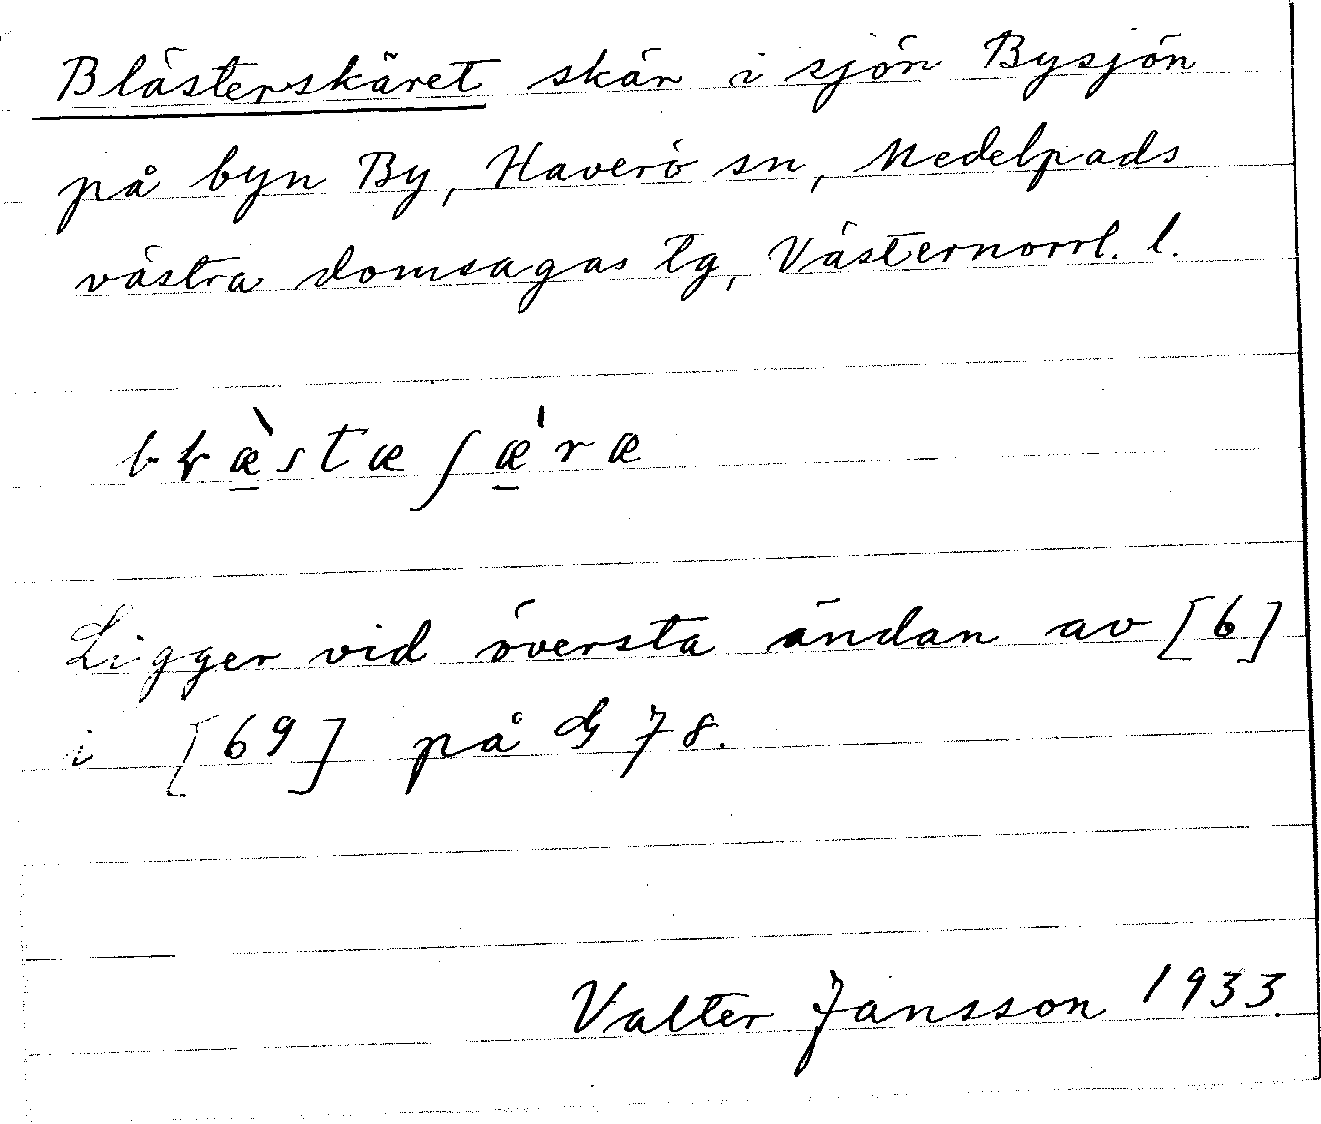 Blästerskäret skär i sjön Bysjön
på byn By, Haverö sn, Medelpads
västra domsagas tg, Västernorrl. l.
Ligger vid översta ändan av [6]
i [69] på G 78.
Valter Jansson 1933.